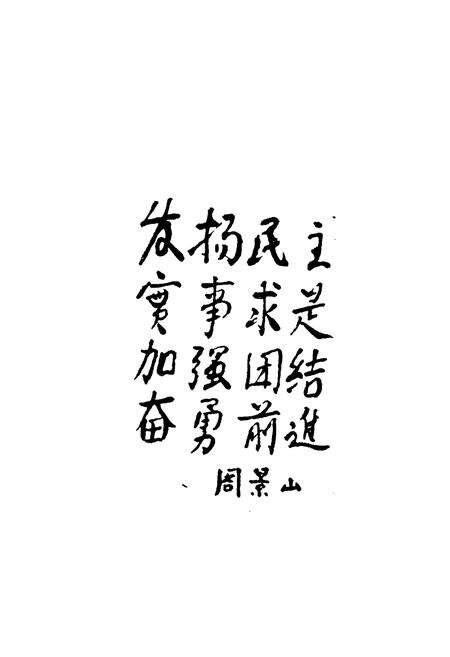 发扬民主
實事求是
加强团結
奋勇前進
周景山